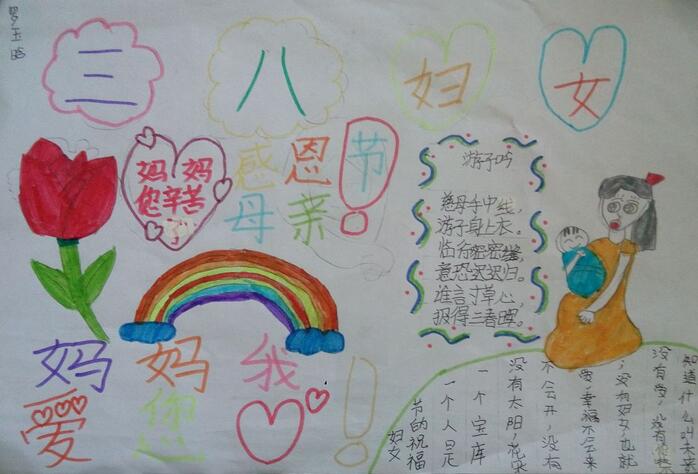 罗玉
三八妇女
节!
妈妈
您辛苦
了
感恩
母亲
游子吟
慈母手中线，
游子身上衣。
临行密密缝，
意恐迟迟归。
谁言寸草心，
报得三春晖。
妈妈我
爱您!
妇女
节的祝福
一个人是
一个宝库
没有太阳，花朵
不会开，没有
爱，幸福不会来
，没有妇女也就
没有爱，没有
知道什么叫